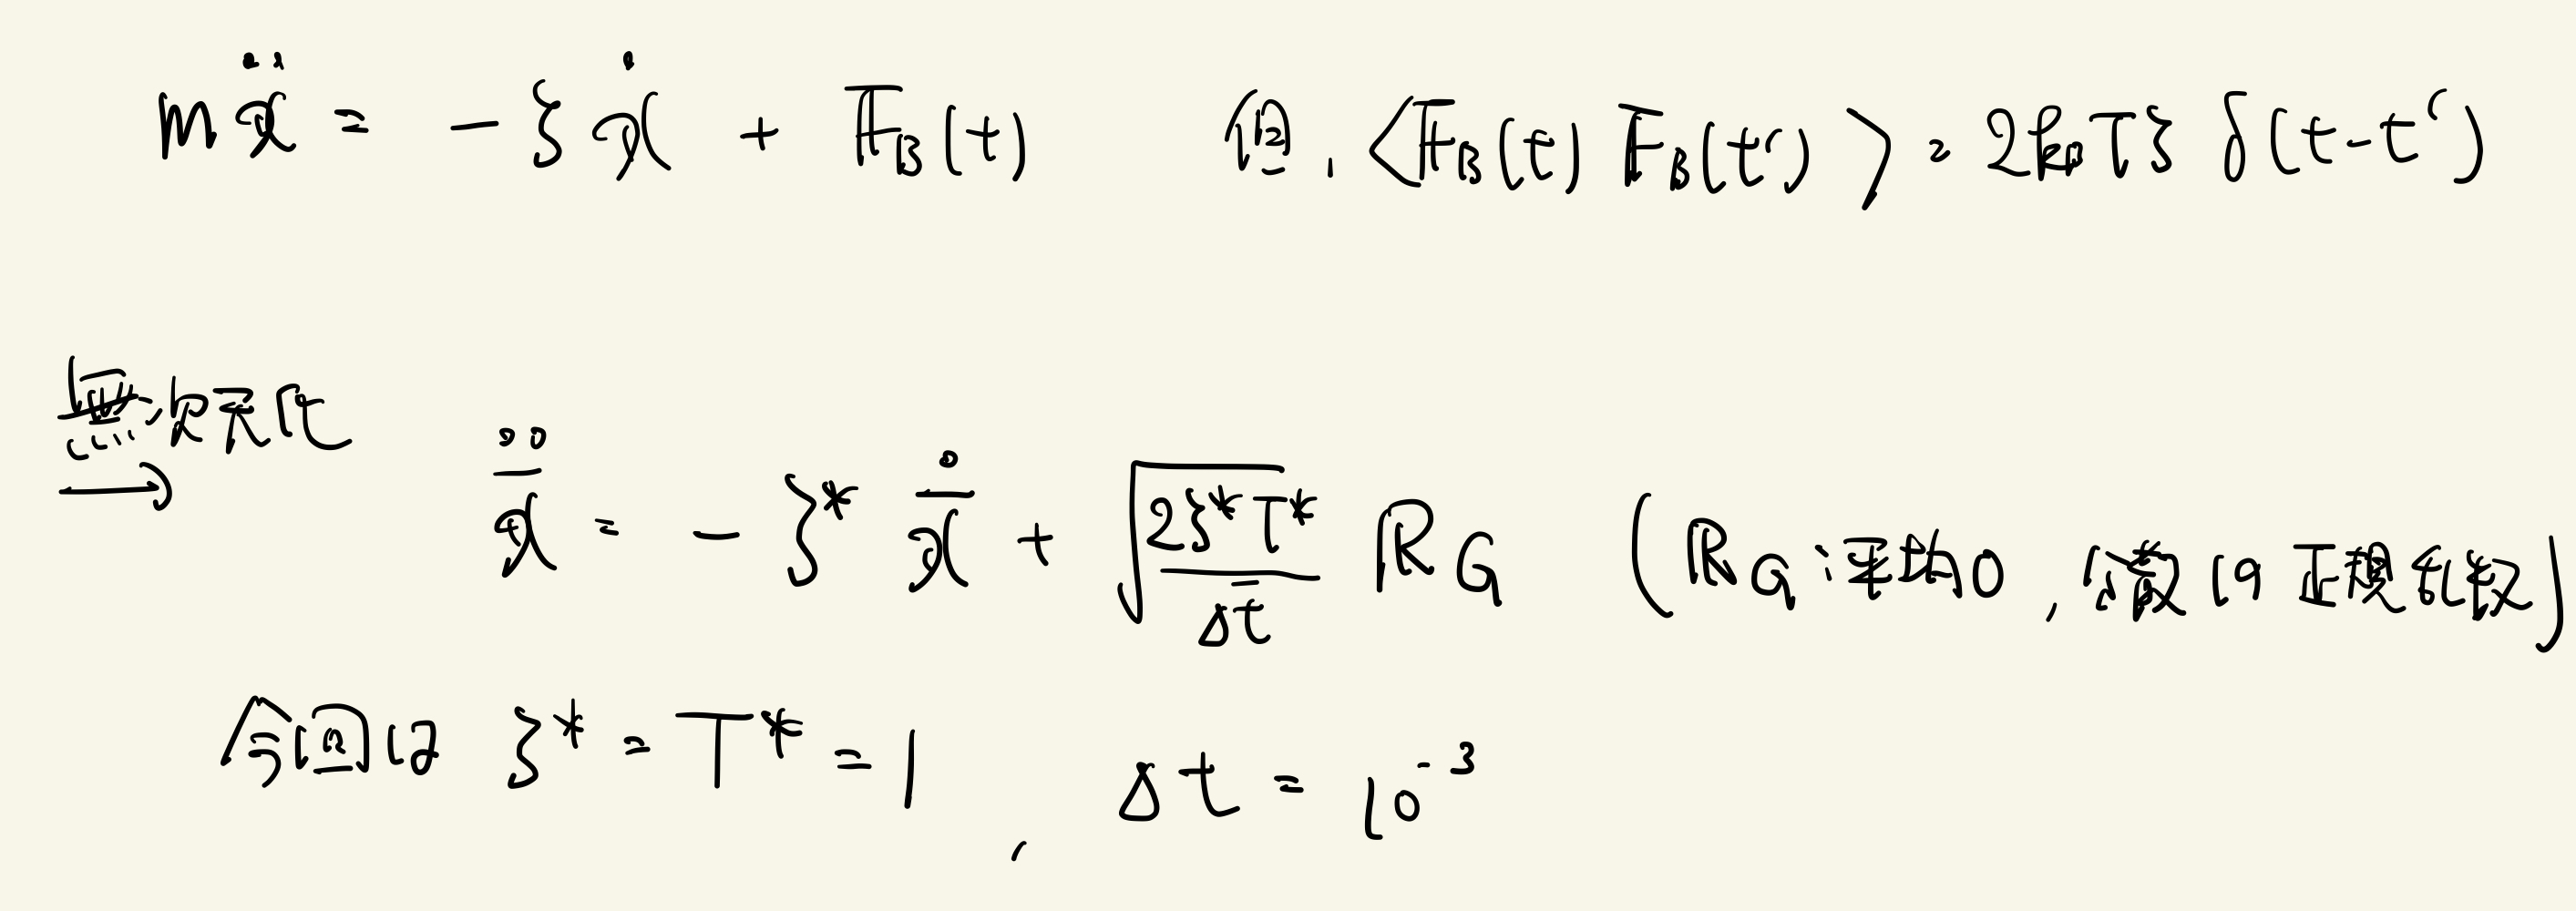 mẍ = -ξẋ + F_B(t)  但, <F_B(t) F_B(t')> = 2k_BTξ δ(t-t')
無次元化
→ x̄̈ = -ξ* x̄̇ + √(2ξ*T*/Δt̄) R_G (R_G:平均0, 分散1の正規乱数)
今回は ξ* = T* = 1, Δt = 10⁻³